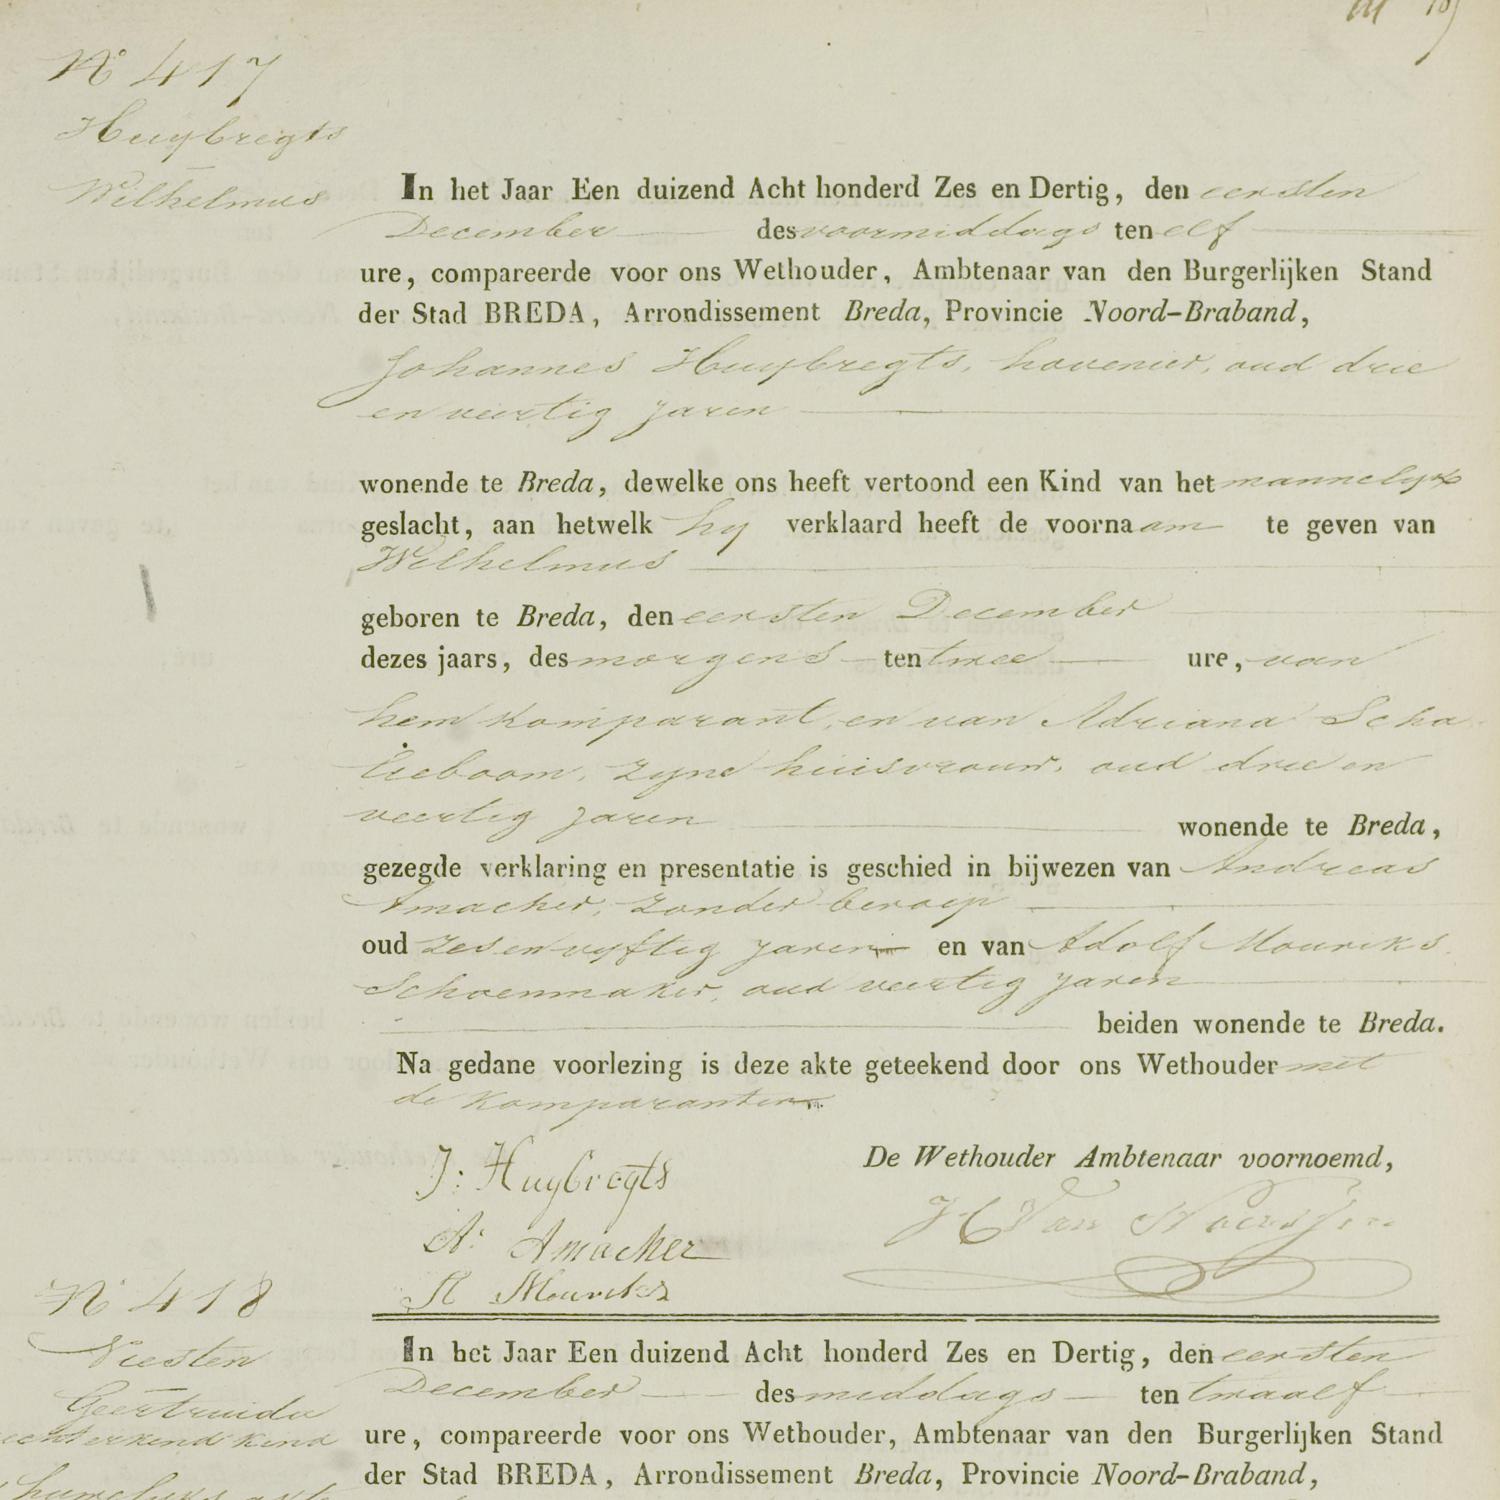 N° 417
Huybregts
Wilhelmus
In het Jaar Een duizend Acht honderd Zes en Dertig, den eersten
December des voormiddags ten elf
ure, compareerde voor ons Wethouder, Ambtenaar van den Burgerlijken Stand
der Stad BREDA, Arrondissement Breda, Provincie Noord-Braband,
Johannes Huybregts, hovenier, oud drie
en veertig jaren
wonende te Breda, dewelke ons heeft vertoond een Kind van het mannelyk
geslacht, aan hetwelk hy verklaard heeft de voornaam te geven van
Wilhelmus
geboren te Breda, den eersten December
dezes jaars, des morgens ten twee ure, van
hem komparant, en van Adriana Scha
lieboom, zyne huisvrouw, oud drie en
veertig jaren wonende te Breda,
gezegde verklaring en presentatie is geschied in bijwezen van Andreas
Amacher, zonder beroep
oud zes en vyftig jaren en van Adolf Mouriks
Schoenmaker, oud veertig jaren
beiden wonende te Breda.
Na gedane voorlezing is deze akte geteekend door ons Wethouder met
de komparanten
J: Huybregts
De Wethouder Ambtenaar voornoemd,
H Van
A: Amacher
A Mouriks
N° 418
Viesten
Geertruida
echt erkend kind
In het Jaar Een duizend Acht honderd Zes en Dertig, den eersten
December des middags ten twaalf
ure, compareerde voor ons Wethouder, Ambtenaar van den Burgerlijken Stand
der Stad BREDA, Arrondissement Breda, Provincie Noord-Braband,